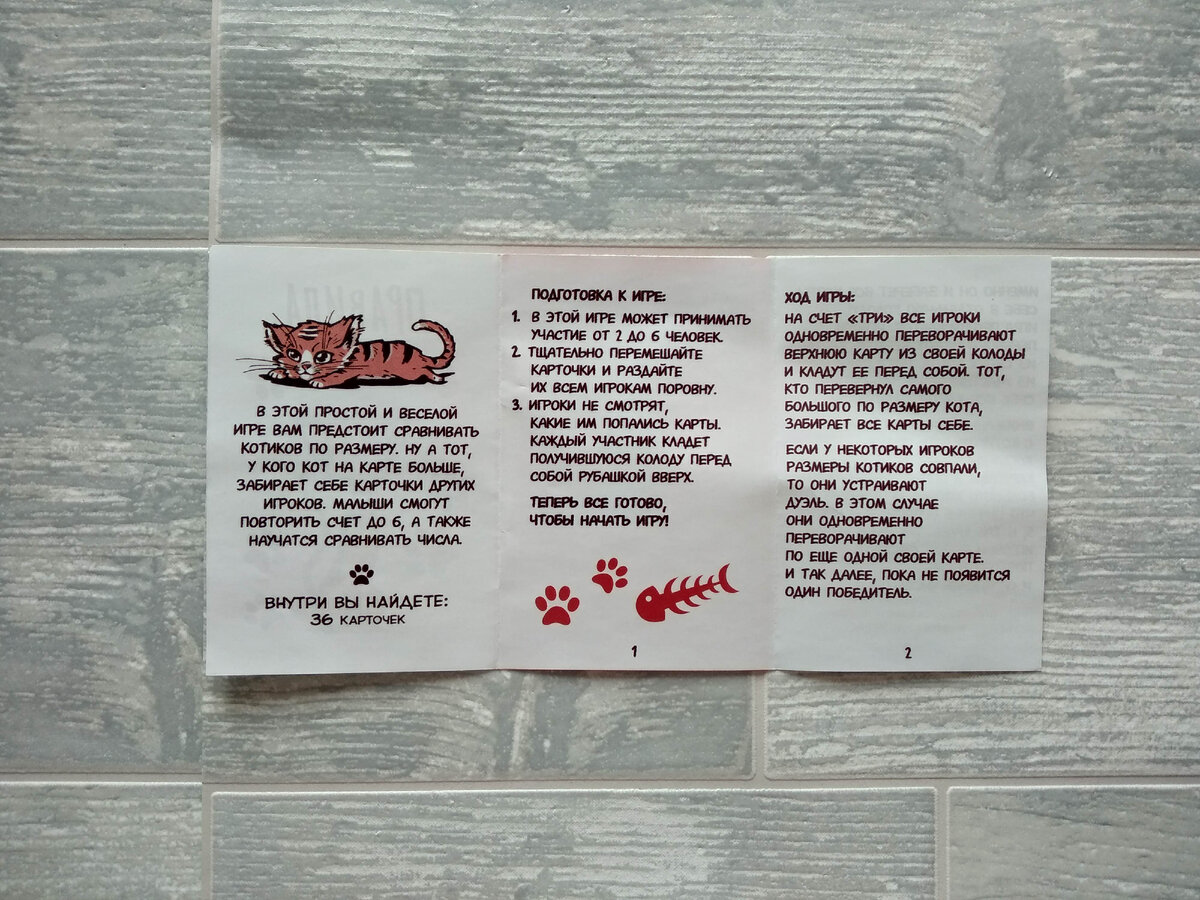 В ЭТОЙ ПРОСТОЙ И ВЕСЕЛОЙ
ИГРЕ ВАМ ПРЕДСТОИТ СРАВНИВАТЬ
КОТИКОВ ПО РАЗМЕРУ. НУ А ТОТ,
У КОГО КОТ НА КАРТЕ БОЛЬШЕ,
ЗАБИРАЕТ СЕБЕ КАРТОЧКИ ДРУГИХ
ИГРОКОВ. МАЛЫШИ СМОГУТ
ПОВТОРИТЬ СЧЕТ ДО 6, А ТАКЖЕ
НАУЧАТСЯ СРАВНИВАТЬ ЧИСЛА.
ВНУТРИ ВЫ НАЙДЕТЕ:
36 КАРТОЧЕК
ПОДГОТОВКА К ИГРЕ:
1. В ЭТОЙ ИГРЕ МОЖЕТ ПРИНИМАТЬ
УЧАСТИЕ ОТ 2 ДО 6 ЧЕЛОВЕК.
2. ТЩАТЕЛЬНО ПЕРЕМЕШАЙТЕ
КАРТОЧКИ И РАЗДАЙТЕ
ИХ ВСЕМ ИГРОКАМ ПОРОВНУ.
3. ИГРОКИ НЕ СМОТРЯТ,
КАКИЕ ИМ ПОПАЛИСЬ КАРТЫ.
КАЖДЫЙ УЧАСТНИК КЛАДЕТ
ПОЛУЧИВШУЮСЯ КОЛОДУ ПЕРЕД
СОБОЙ РУБАШКОЙ ВВЕРХ.
ТЕПЕРЬ ВСЕ ГОТОВО,
ЧТОБЫ НАЧАТЬ ИГРУ!
1
ХОД ИГРЫ:
НА СЧЕТ «ТРИ» ВСЕ ИГРОКИ
ОДНОВРЕМЕННО ПЕРЕВОРАЧИВАЮТ
ВЕРХНЮЮ КАРТУ ИЗ СВОЕЙ КОЛОДЫ
И КЛАДУТ ЕЕ ПЕРЕД СОБОЙ. ТОТ,
КТО ПЕРЕВЕРНУЛ САМОГО
БОЛЬШОГО ПО РАЗМЕРУ КОТА,
ЗАБИРАЕТ ВСЕ КАРТЫ СЕБЕ.
ЕСЛИ У НЕКОТОРЫХ ИГРОКОВ
РАЗМЕРЫ КОТИКОВ СОВПАЛИ,
ТО ОНИ УСТРАИВАЮТ
ДУЭЛЬ. В ЭТОМ СЛУЧАЕ
ОНИ ОДНОВРЕМЕННО
ПЕРЕВОРАЧИВАЮТ
ПО ЕЩЕ ОДНОЙ СВОЕЙ КАРТЕ.
И ТАК ДАЛЕЕ, ПОКА НЕ ПОЯВИТСЯ
ОДИН ПОБЕДИТЕЛЬ.
2